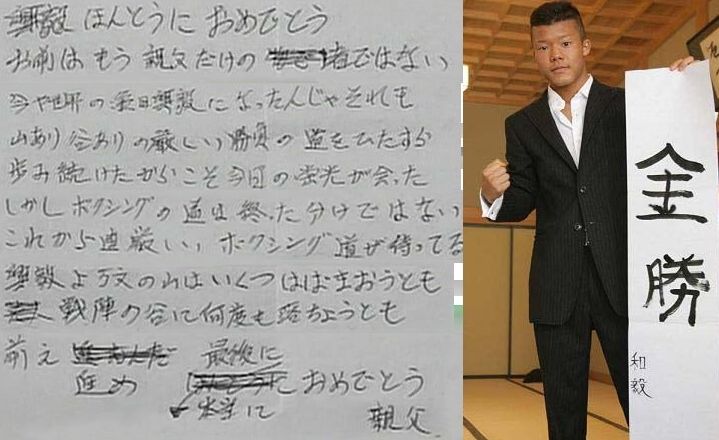 興毅 ほんとうに おめでとう
お前は もう 親父だけの 者ではない
今や世界の亀田興毅になったんじゃそれも
山あり谷ありの厳しい勝負の道をひたすら
歩み続けたからこそ今日の栄光が会った
しかしボクシングの道は終った分けではない
これから 厳しいボクシング道が待ってる
興毅よ万丈の山はいくつはばまおうとも
戦陣の谷に何度も落ちようとも
前え 最後に
進め におめでとう
本当に 親父
金勝
和毅